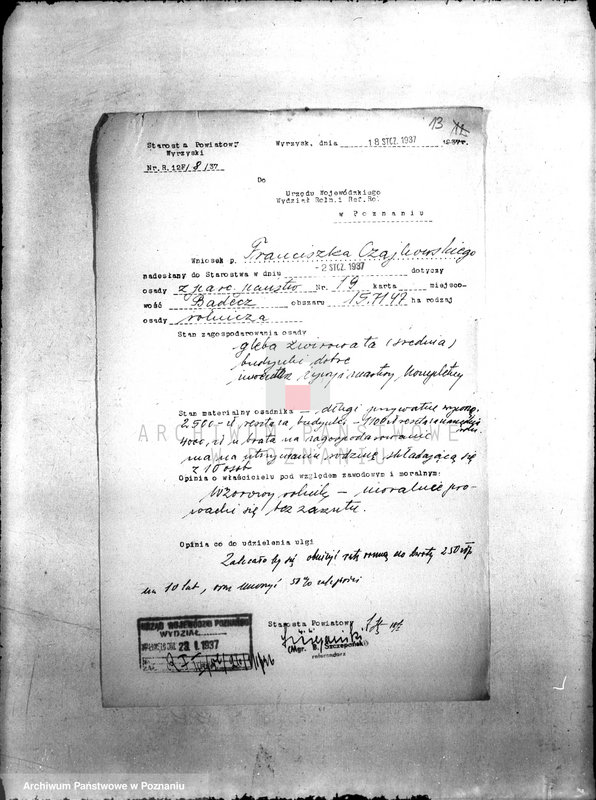 13
Starosta Powiatowy
Wyrzyski
Wyrzysk, dnia 18 STCZ. 1937 1937r.
Nr.R.12F/8/37
Do
Urzędu Wojewódzkiego
Wydział Roln.i Ref.Ro.
w Poznaniu
Wniosek p. Franciszka Czajkowskiego
nadesłany do Starostwa w dniu -2 STCZ. 1937 dotyczy
osady z parc. państw Nr. 19 karta miejsco-
wość Bądecz obszaru 15.7147 ha rodzaj
osady rolnicza
Stan zagospodarowania osady
gleba żwirowata (średnia)
budynki dobre
inwentarz żywy i martwy kompletny
Stan materialny osadnika – długi prywatne wynoszą
2.500 zł resztówka budynki
4000 zł u brata na zagospodarowanie
ma na utrzymaniu rodzinę składającą się
z 10 osób
Opinia o właścicielu pod względem zawodowym i moralnym:
Wzorowy rolnik – moralnie pro-
wadzi się bez zarzutu.
Opinia co do udzielenia ulgi
Zalecało by się obniżyć ratę roczną do kwoty 250 zł
na 10 lat, oraz umorzyć 50% zaległości
Starosta Powiatowy
(Mgr. B. Szczepański)
referendarz
URZĄD WOJEWÓDZKI POZNAŃSKI
WYDZIAŁ
23. I. 1937
ARCHIWUM PAŃSTWOWE
W POZNANIU
Archiwum Państwowe w Poznaniu